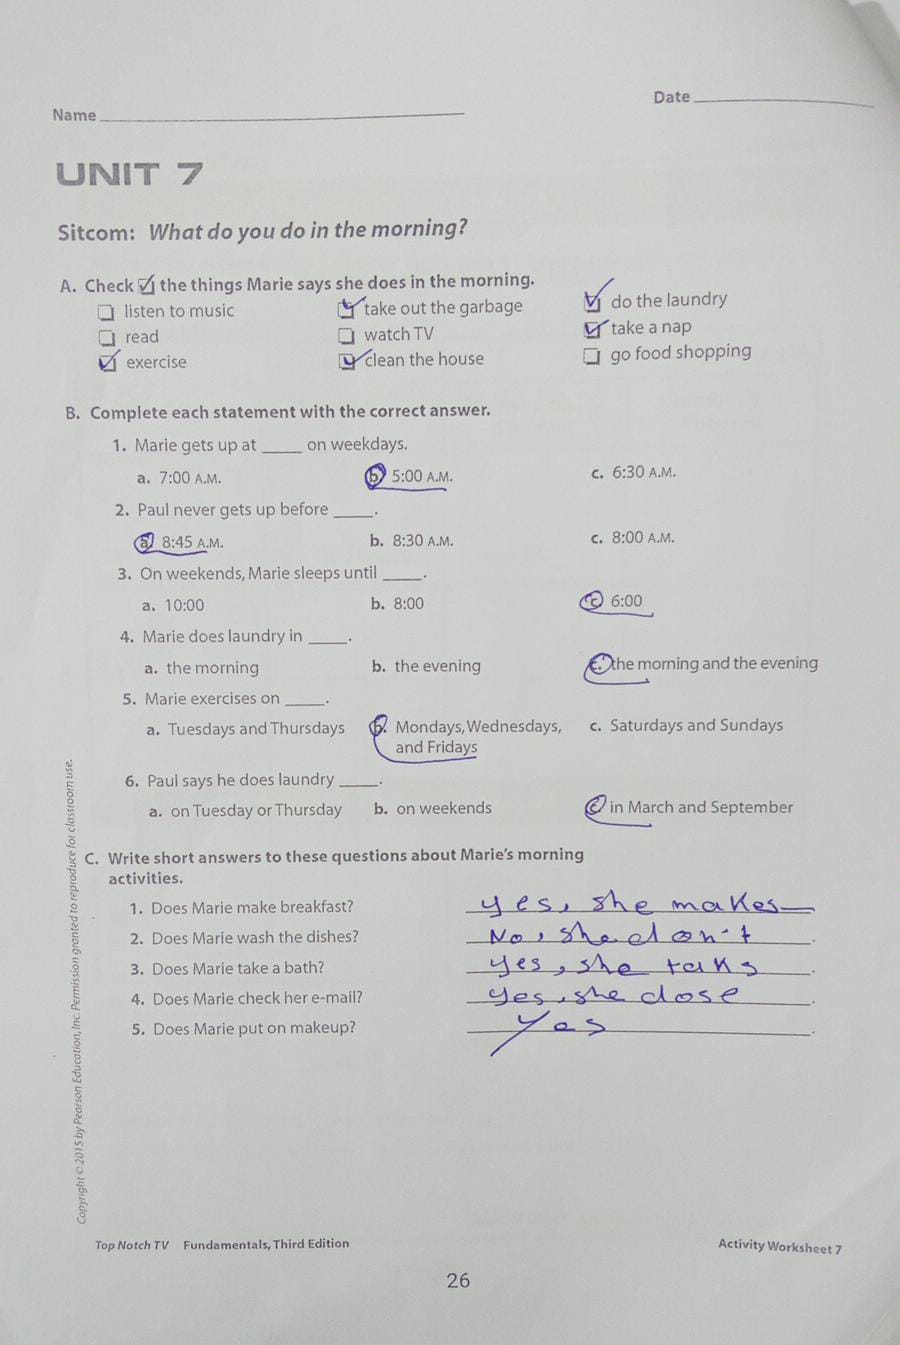 Name
Date
UNIT 7
Sitcom: What do you do in the morning?
A. Check ☑ the things Marie says she does in the morning.
listen to music
take out the garbage
do the laundry
read
watch TV
take a nap
exercise
clean the house
go food shopping
B. Complete each statement with the correct answer.
1. Marie gets up at _____ on weekdays.
a. 7:00 A.M. b. 5:00 A.M. c. 6:30 A.M.
2. Paul never gets up before _____.
a. 8:45 A.M. b. 8:30 A.M. c. 8:00 A.M.
3. On weekends, Marie sleeps until _____.
a. 10:00 b. 8:00 c. 6:00
4. Marie does laundry in _____.
a. the morning b. the evening c. the morning and the evening
5. Marie exercises on _____.
a. Tuesdays and Thursdays b. Mondays, Wednesdays, c. Saturdays and Sundays
and Fridays
6. Paul says he does laundry _____.
a. on Tuesday or Thursday b. on weekends c. in March and September
C. Write short answers to these questions about Marie's morning
activities.
1. Does Marie make breakfast? yes, she makes
2. Does Marie wash the dishes? No, she don't.
3. Does Marie take a bath? yes, she taks.
4. Does Marie check her e-mail? yes, she dose.
5. Does Marie put on makeup? Yes.
Copyright © 2015 by Pearson Education, Inc. Permission granted to reproduce for classroom use.
Top Notch TV Fundamentals, Third Edition
Activity Worksheet 7
26